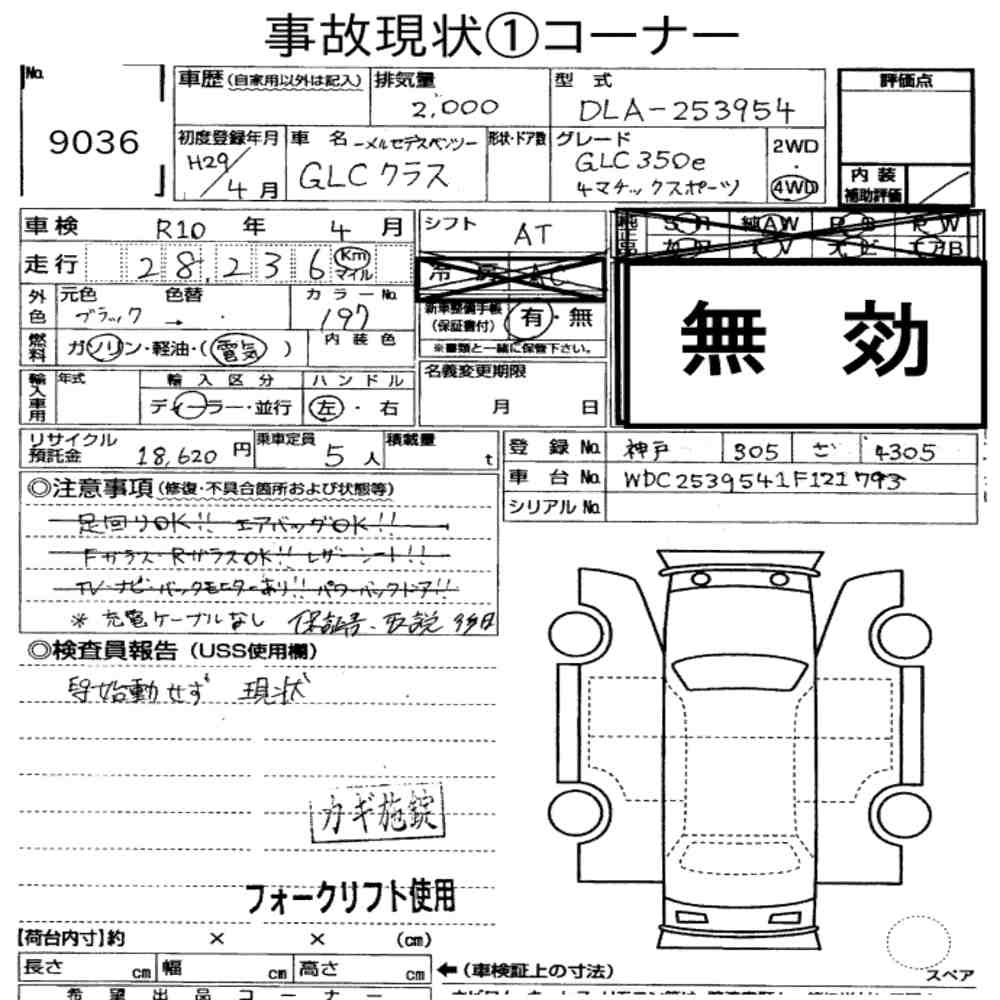 事故現状①コーナー
No. 9036
車歴(自家用以外は記入)
排気量 2,000
型式 DLA-253954
評価点
初度登録年月 H29/4月
車名 メルセデスベンツ GLCクラス
形状・ドア数
グレード GLC350e 4マチックスポーツ
2WD・4WD
内装補助評価
車検 R10年 4月
シフト AT
走行 28,236 Km マイル
冷房 AC
外色 元色 ブラック 色替 → ・
カラーNo. 197
新車整備手帳(保証書付) 有・無
※書類と一緒に保管下さい。
無効
燃料 ガソリン・軽油・(電気)
内装色
輸入車用 年式
輸入区分 ディーラー・並行
ハンドル 左・右
名義変更期限 月 日
リサイクル預託金 18,620円
乗車定員 5人
積載量 t
登録No. 神戸 305 4305
車台No. WDC2539541F121793
シリアルNo.
◎注意事項(修復・不具合箇所および状態等)
足回りOK!! エアバッグOK!!
Fガラス・RガラスOK!! レザーシート!!
TV・ナビ・バックモニターあり!! パワーバックドア!!
※ 充電ケーブルなし 保証書、取説
◎検査員報告(USS使用欄)
始動せず 現状
カギ施錠
フォークリフト使用
【荷台内寸】約 × × (cm)
長さ cm 幅 cm 高さ cm
←(車検証上の寸法)
スペア
希望出品コーナー